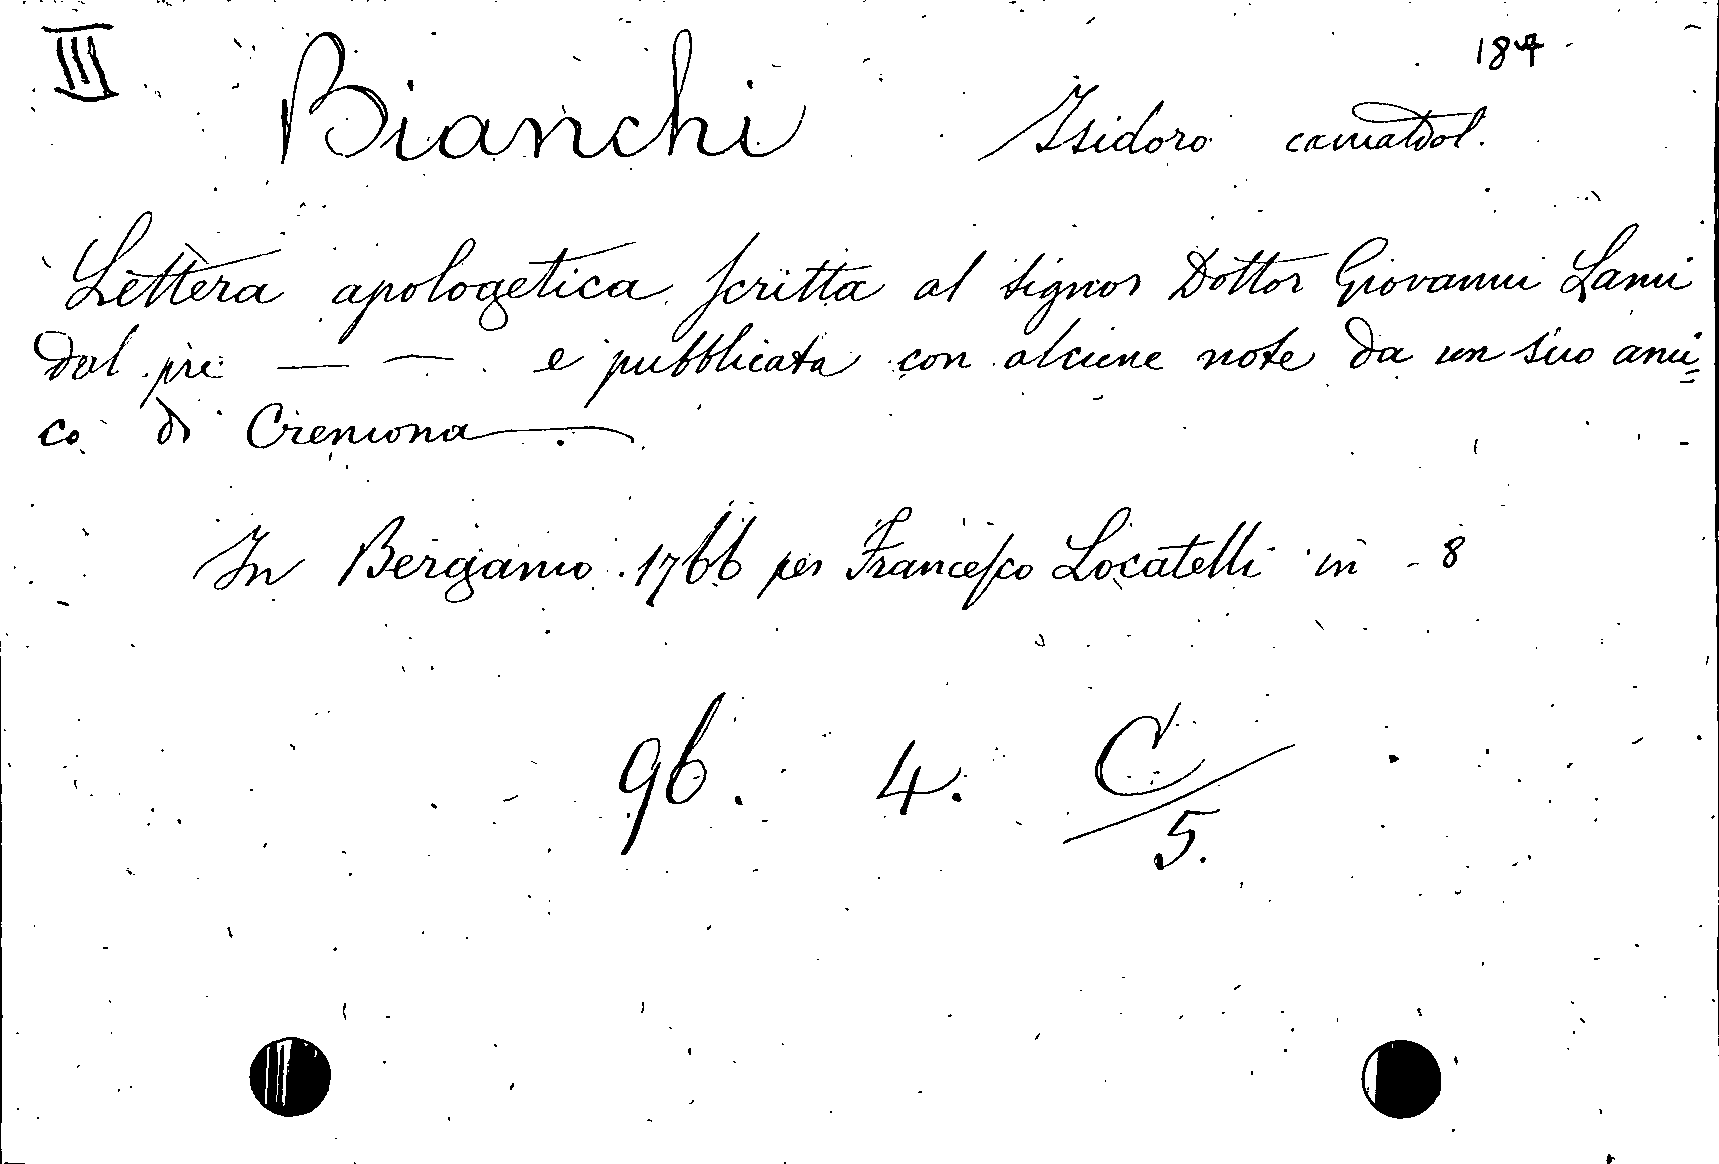 III
Bianchi Isidoro camaldol.
Lettera apologetica scritta al signor Dottor Giovanni Lami
dal pre — — e pubblicata con alcune note da un suo ami=
co di Cremona
In Bergamo 1766 per Francesco Locatelli in - 8
96. 4. C/5.